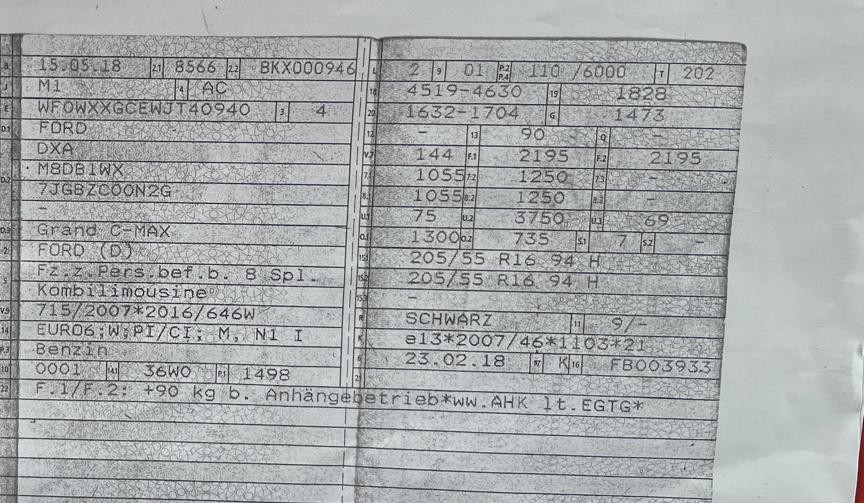 B 15.05.18 2.1 8566 2.2 BKX000946 L 2 9 01 P.2 P.4 110 /6000 T 202
J M1 4 AC 18 4519-4630 19 1828
E WF0WXXGCEWJT40940 3 4 20 1632-1704 G 1473
D.1 FORD 12 - 13 90 Q -
DXA V.7 144 F.1 2195 F.2 2195
D.2 M8DB1WX 7.1 1055 7.2 1250 7.3 -
7JGBZC00N2G 8.1 1055 8.2 1250 8.3 -
- U.1 75 U.2 3750 U.3 69
D.3 Grand C-MAX O.1 1300 O.2 735 S.1 7 S.2 -
2 FORD (D) 15.1 205/55 R16 94 H
5 Fz.z.Pers.bef.b. 8 Spl. 15.2 205/55 R16 94 H
Kombilimousine 15.3 -
V.9 715/2007*2016/646W R SCHWARZ 11 9/-
14 EURO6;W;PI/CI; M, N1 I K e13*2007/46*1103*21
P.3 Benzin 6 23.02.18 17 K 16 FB003933
10 0001 14.1 36W0 P.1 1498 21
22 F.1/F.2: +90 kg b. Anhängebetrieb*ww.AHK lt.EGTG*